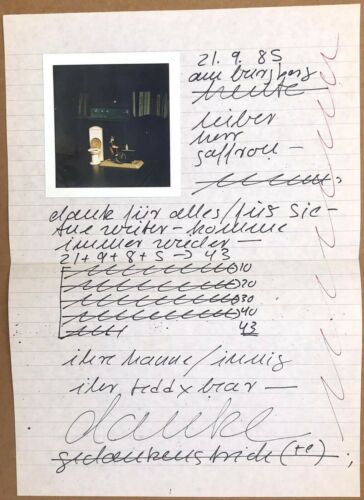 21. 9. 85
am burgberg
heute
lieber
herr
saffroll —
danke für alles/für sie-
immer wieder —
21+9+8+5 → 43
10
20
30
40
43
ihre hanne/innig
ihr teddx bear —
danke
gedankenstrich (te)